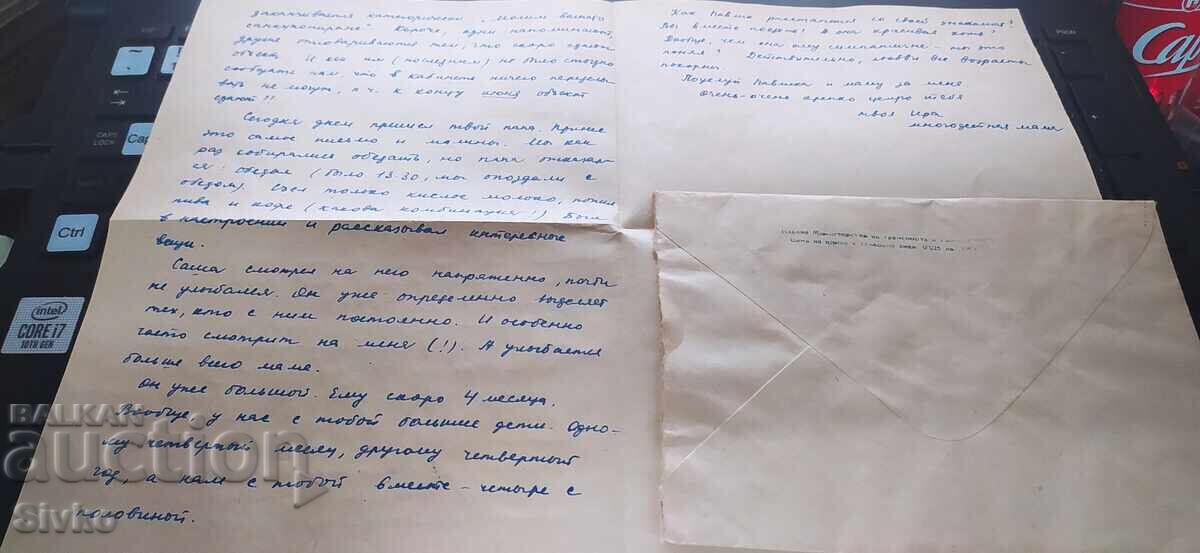 заканчивается категорически "молим вашего
самокопиране". Короче, одни напоминают,
другие отговариваются тем, что скоро сдают
объект. И все им (последнем) не было стыдно
сообщить нам, что в кабинете ничего переделы-
вать не могут, п.ч. к концу июня объект
сдают!!
Сегодня днем пришел твой папа. Принес
это самое письмо и малины. Мы как
раз собирались обедать, но папа отказал-
ся обедал (было 13.30, мы опоздали с
обедом). Съел только кислое молоко, попил
пива и кофе (какова комбинация!) Был
в настроении и рассказывал интересные
вещи.
Саша смотрел на него напряженно, почти
не улыбался. Он уже определенно выделяет
тех, кто с ним постоянно. И особенно
часто смотрит на меня (!). А улыбается
больше всего маме.
Он уже большой. Ему скоро 4 месяца.
Вообще, у нас с тобой большие дети. Одно-
му четвертый месяц, другому четвертый
год, а нам с тобой вместе - четыре с
половиной.
Как Павлик расстается со своей
Вы вместе поедете? А она красивая хотя?
Вообще, чем она ему симпатична - ты это
понял? Действительно, любви все возрасты
покорны.
Поцелуй Павлика и маму за меня
Очень-очень крепко целую тебя
твоя Ира
многодетная мама
Ctrl
CAPS
LOCK
intel
CORE i7
10TH GEN
Cap
BALKAN
auction
Sivko